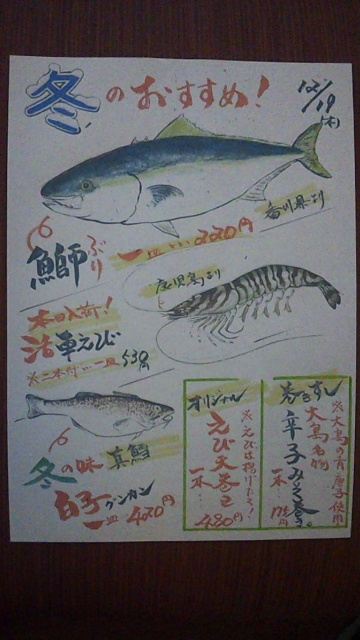 冬のおすすめ!
12/19(木)
鰤
ぶり
一皿 220円
香川県より
鹿児島より
本日入荷!
活車えび
※二本付…一皿530円
冬の味 真鱈
白子グンカン
一皿 420円
オリジナル
※えびは揚げたて!
えび天巻き
一本…480円
巻きずし
※大島の青唐子使用
大島名物
辛子みそ巻き。
一本